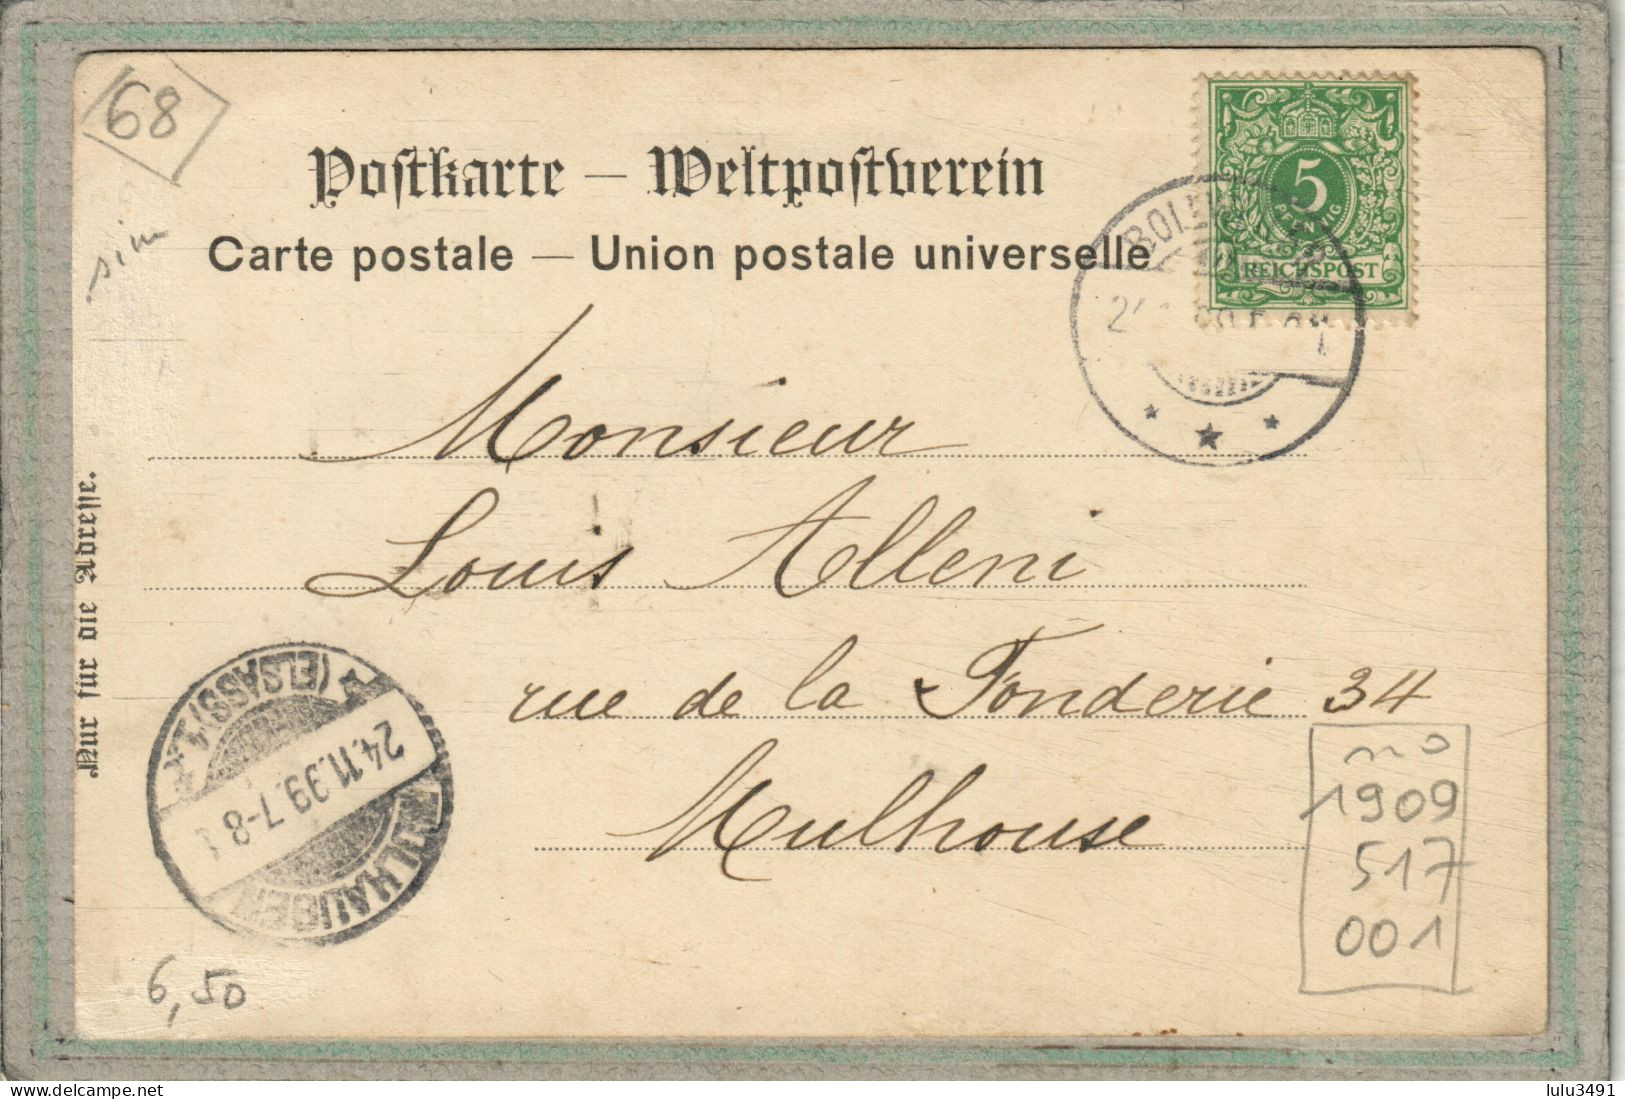 68
sim
Postkarte — Weltpostverein
Carte postale — Union postale universelle
5
PFENNIG
REICHSPOST
Nur für die Adresse.
Monsieur
Louis Alleni
rue de la Fonderie 34
Mulhouse
MÜLHAUSEN
(ELSASS) 1
24.11.99.7-8
no
1909
517
001
6,50
delcampe.net
lulu3491